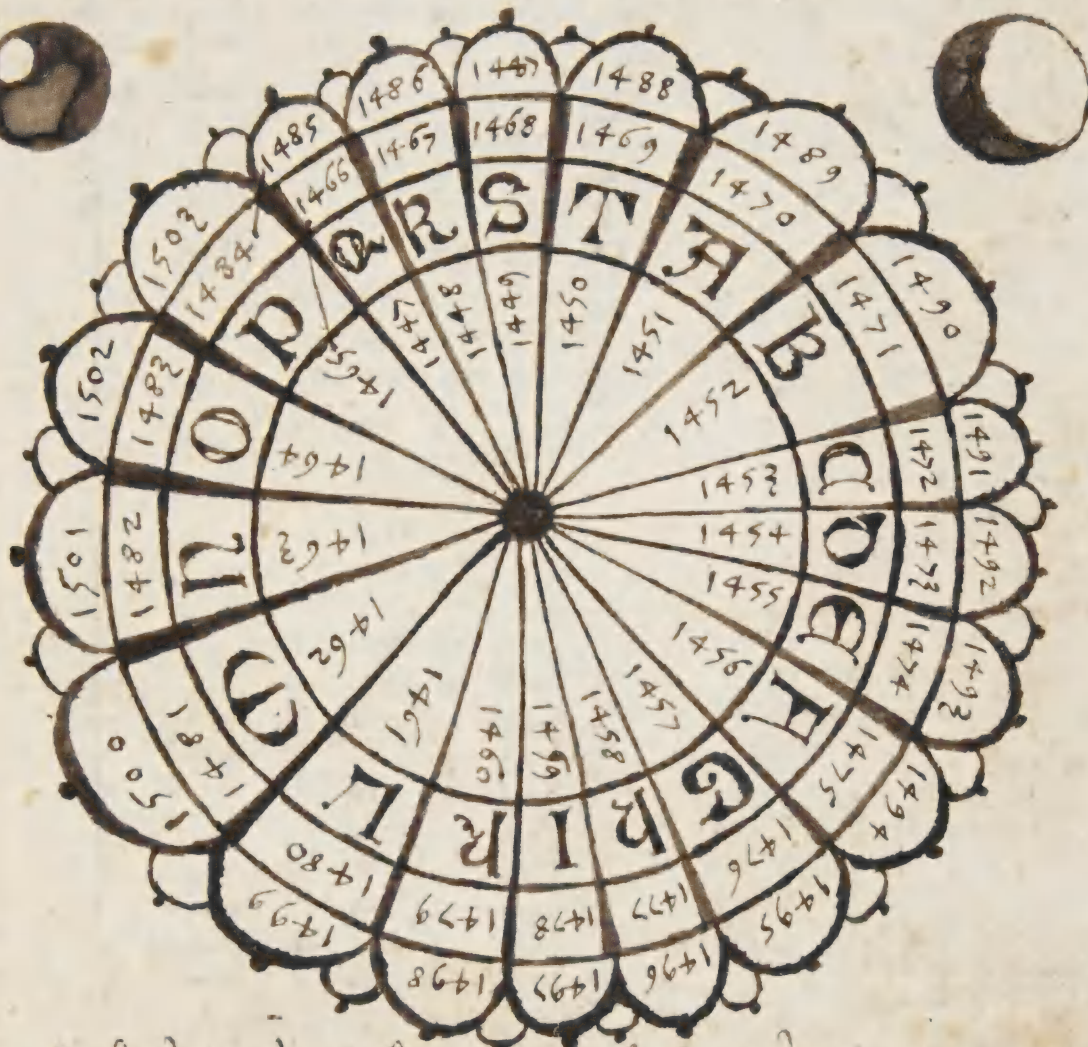 1485 1486 1487 1488 1489 1490 1491 1492 1493 1494 1495 1496 1497 1498 1499 1500 1501 1502 1503
1466 1467 1468 1469 1470 1471 1472 1473 1474 1475 1476 1477 1478 1479 1480 1481 1482 1483 1484
Q R S T A B C D E F G H I K L M N O P
1447 1448 1449 1450 1451 1452 1453 1454 1455 1456 1457 1458 1459 1460 1461 1462 1463 1464 1465